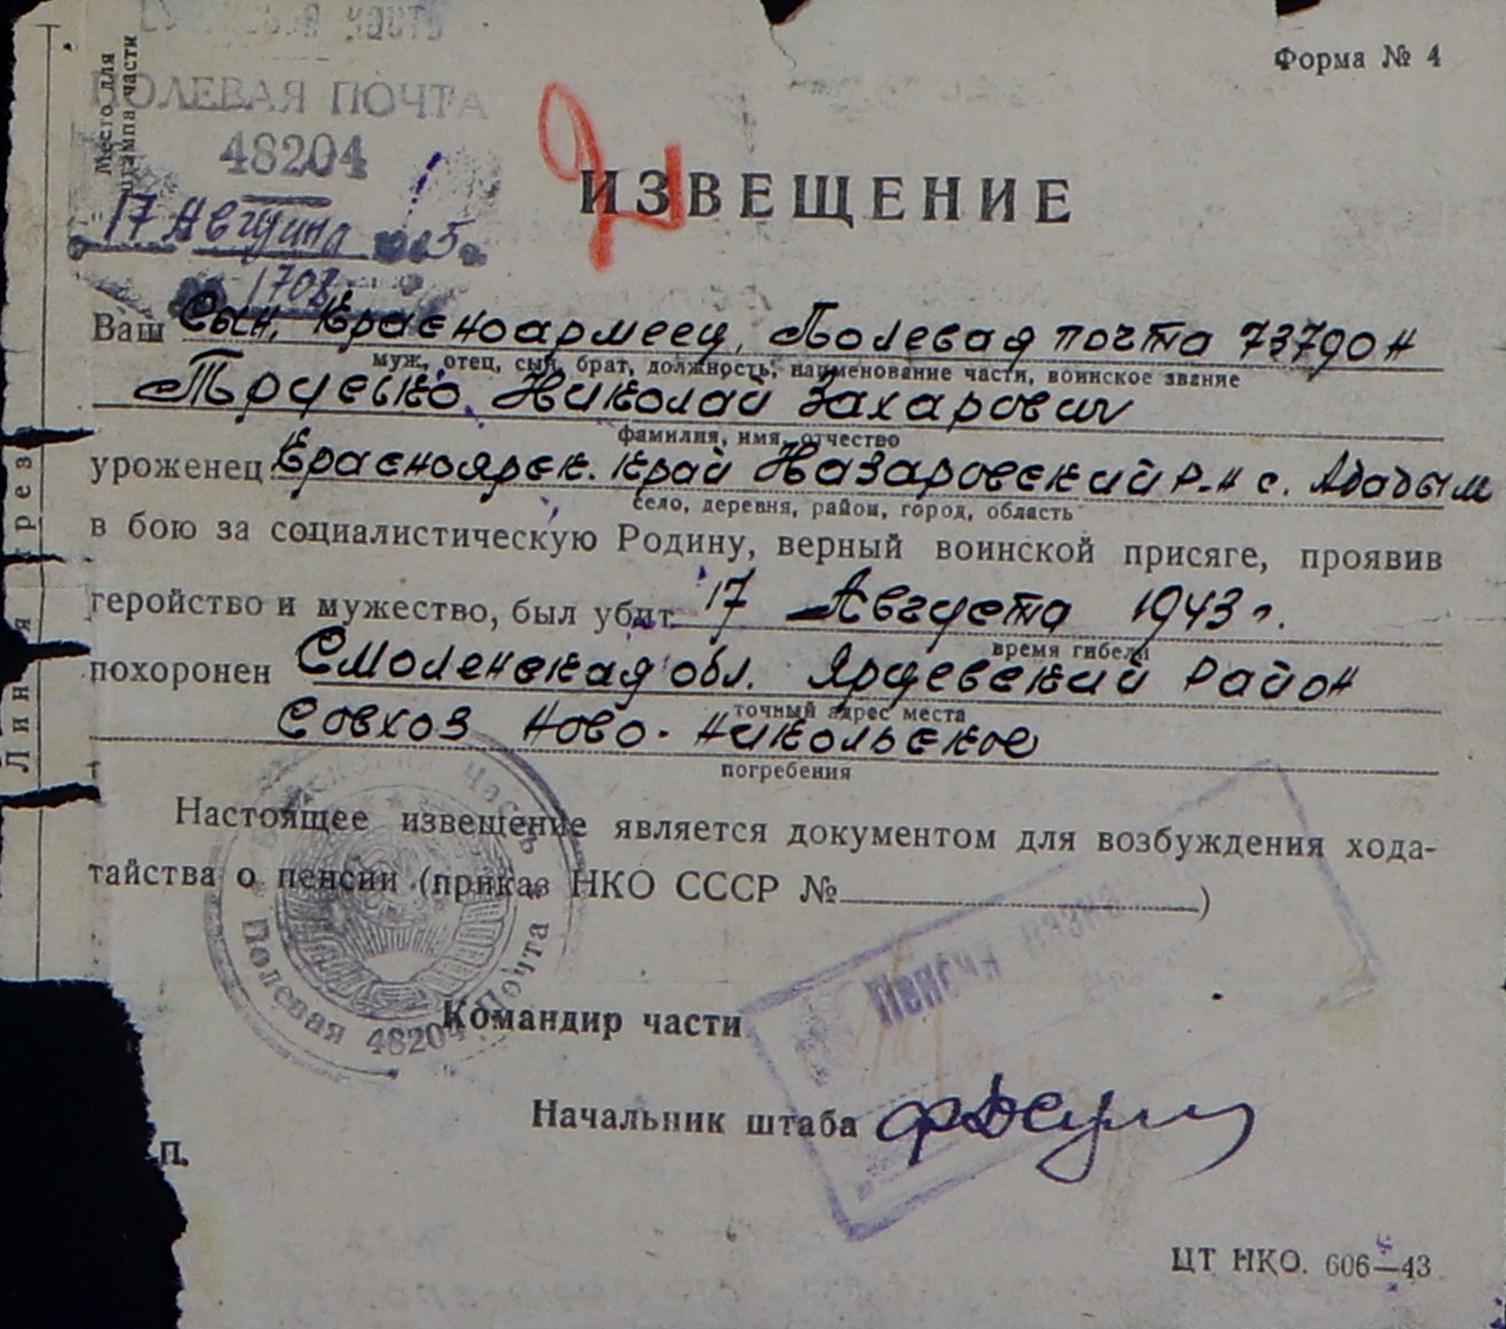 Форма № 4
Место для
штампа части
ПОЛЕВАЯ ПОЧТА
48204
17 Августа 1945 г.
1708
ИЗВЕЩЕНИЕ
Ваш Сын, Красноармеец, Полевая почта 73790 н
муж, отец, сын, брат, должность, наименование части, воинское звание
Николай Захарович
фамилия, имя, отчество
уроженец Красноярск. край Назаровский р-н с. Ададым
село, деревня, район, город, область
в бою за социалистическую Родину, верный воинской присяге, проявив
геройство и мужество, был убит 17 Августа 1943 г.
время гибели
похоронен Смоленская обл. Ярцевский район
точный адрес места
Совхоз Ново-Никольское
погребения
Настоящее извещение является документом для возбуждения хода-
тайства о пенсии (приказ НКО СССР №)
часть
Полевая почта 48204
Пенсия
Командир части
Начальник штаба
П.
ЦТ НКО. 606—43
Линия отреза